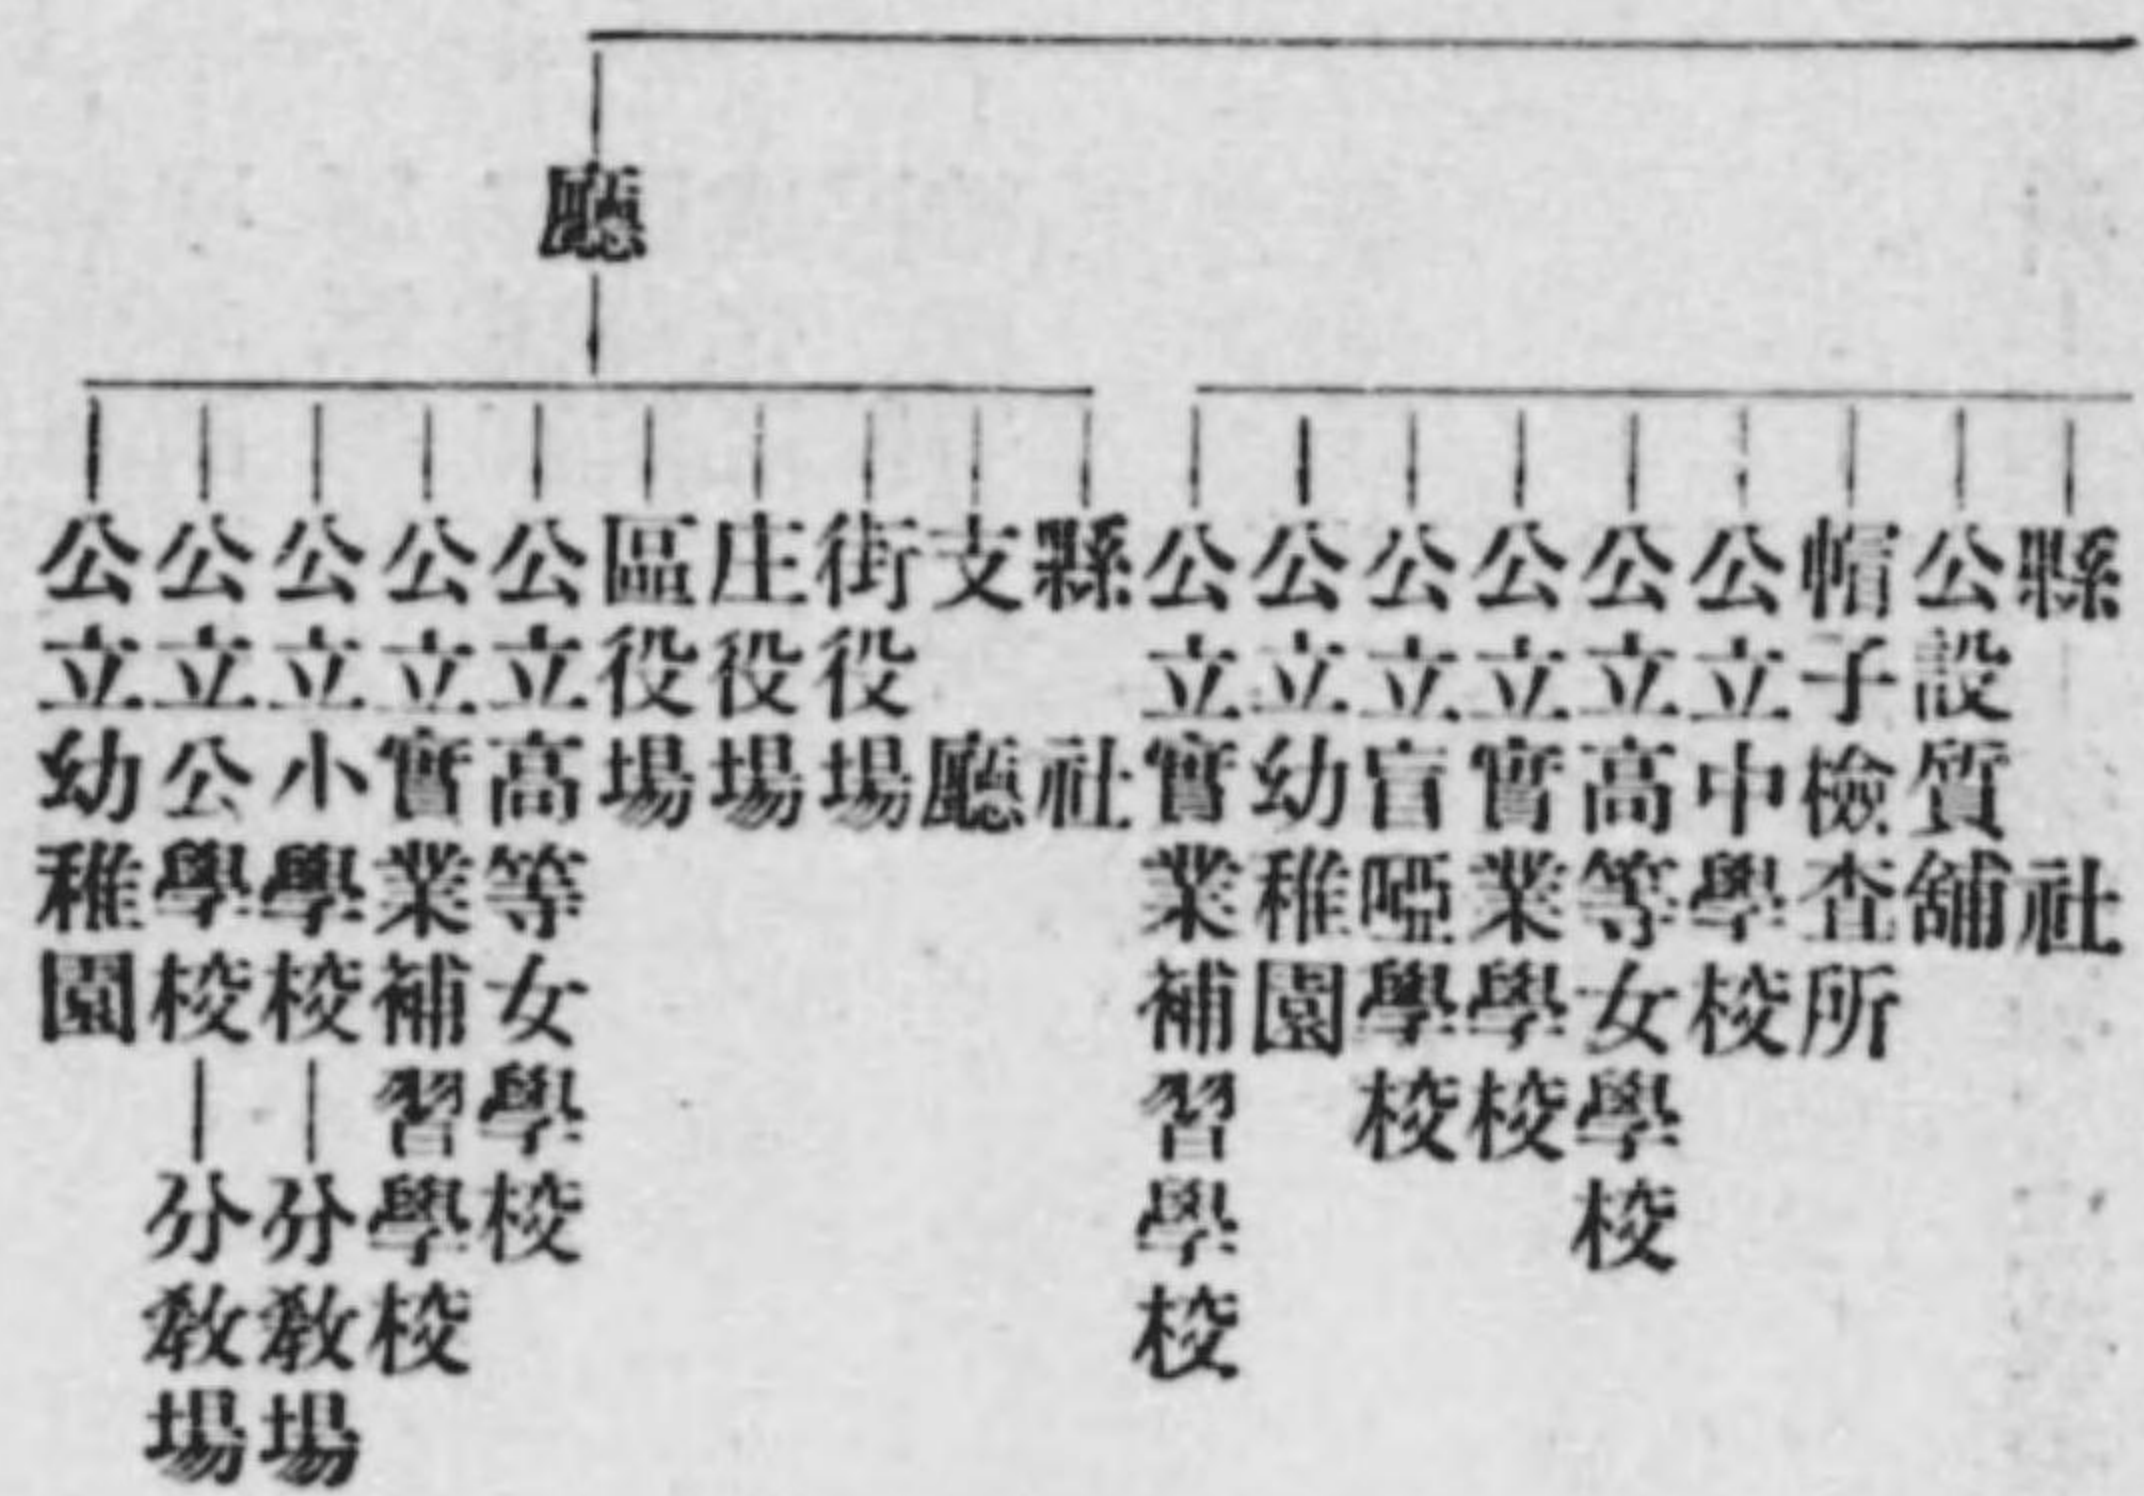 縣社
公設質舖
帽子檢査所
公立中學校
公立高等女學校
公立實業學校
公立盲啞學校
公立幼稚園
公立實業補習學校
廳
縣社
支廳
街役場
庄役場
區役場
公立高等女學校
公立實業補習學校
公立小學校—分敎場
公立公學校—分敎場
公立幼稚園